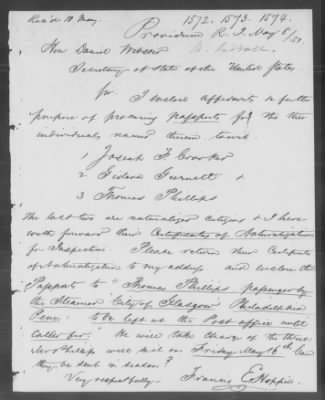 Rec'd 10 May.
1572. 1573. 1574.
Providence R. I. May 8/51.
Hon Daniel Webster
Secretary of State of the United States
Sir. I enclose affidavits to further
purpose of procuring passports for the three
individuals named therein to wit
1 Joseph F. Crocker
2 Gideon Gurnett &
3 Thomas Phillips
The last two are naturalized citizens & I have
forward their Certificates of Naturalization
for Inspection. Please return these Certificates
of Naturalization to my address and enclose the
Passports to "Thomas Phillips passenger by
the Steamer City of Glasgow Philadelphia
Penn: to be left at the Post office until
called for." He will take charge of the three.
Mr Phillips will sail on Friday May 16th Can
they be sent in season?
Very respectfully—
Francis E. Hoppin